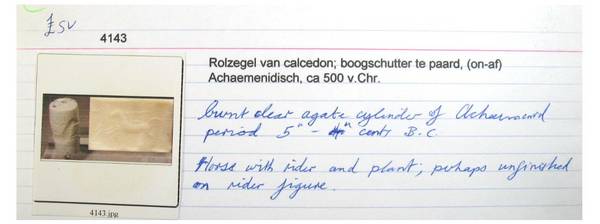 £SV
4143
Rolzegel van calcedon; boogschutter te paard, (on-af)
Achaemenidisch, ca 500 v.Chr.
burnt clear agate cylinder of Achaemenid
period 5" - 4th cent. B.C.
Horse with rider and plant; perhaps unfinished
on rider figure.
4143.jpg